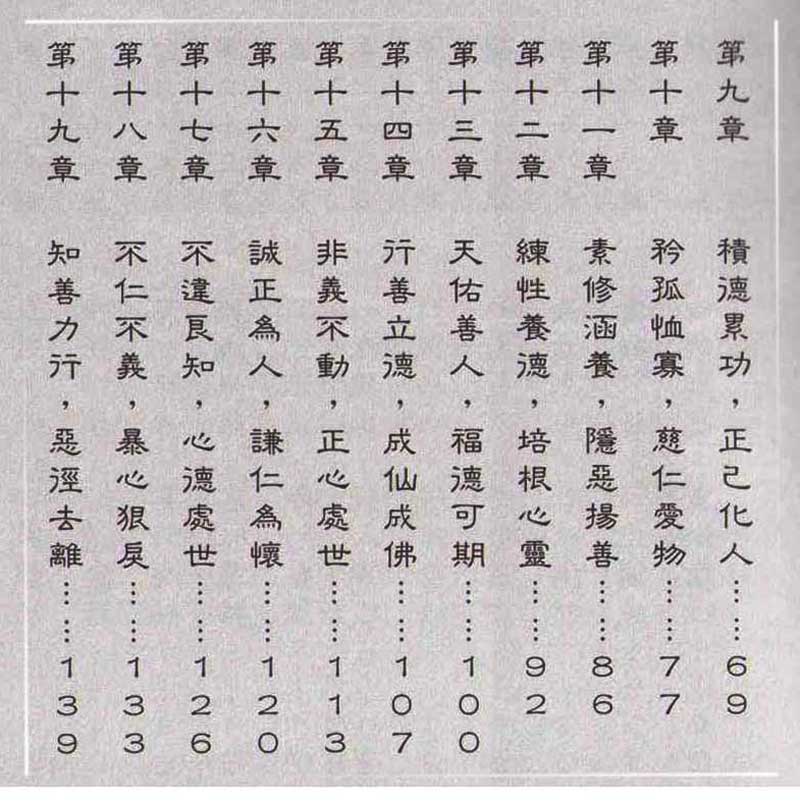 第九章 積德累功，正己化人……69
第十章 矜孤恤寡，慈仁愛物……77
第十一章 素修涵養，隱惡揚善……86
第十二章 練性養德，培根心靈……92
第十三章 天佑善人，福德可期……100
第十四章 行善立德，成仙成佛……107
第十五章 非義不動，正心處世……113
第十六章 誠正為人，謙仁為懷……120
第十七章 不違良知，心德處世……126
第十八章 不仁不義，暴心狠戾……133
第十九章 知善力行，惡徑去離……139